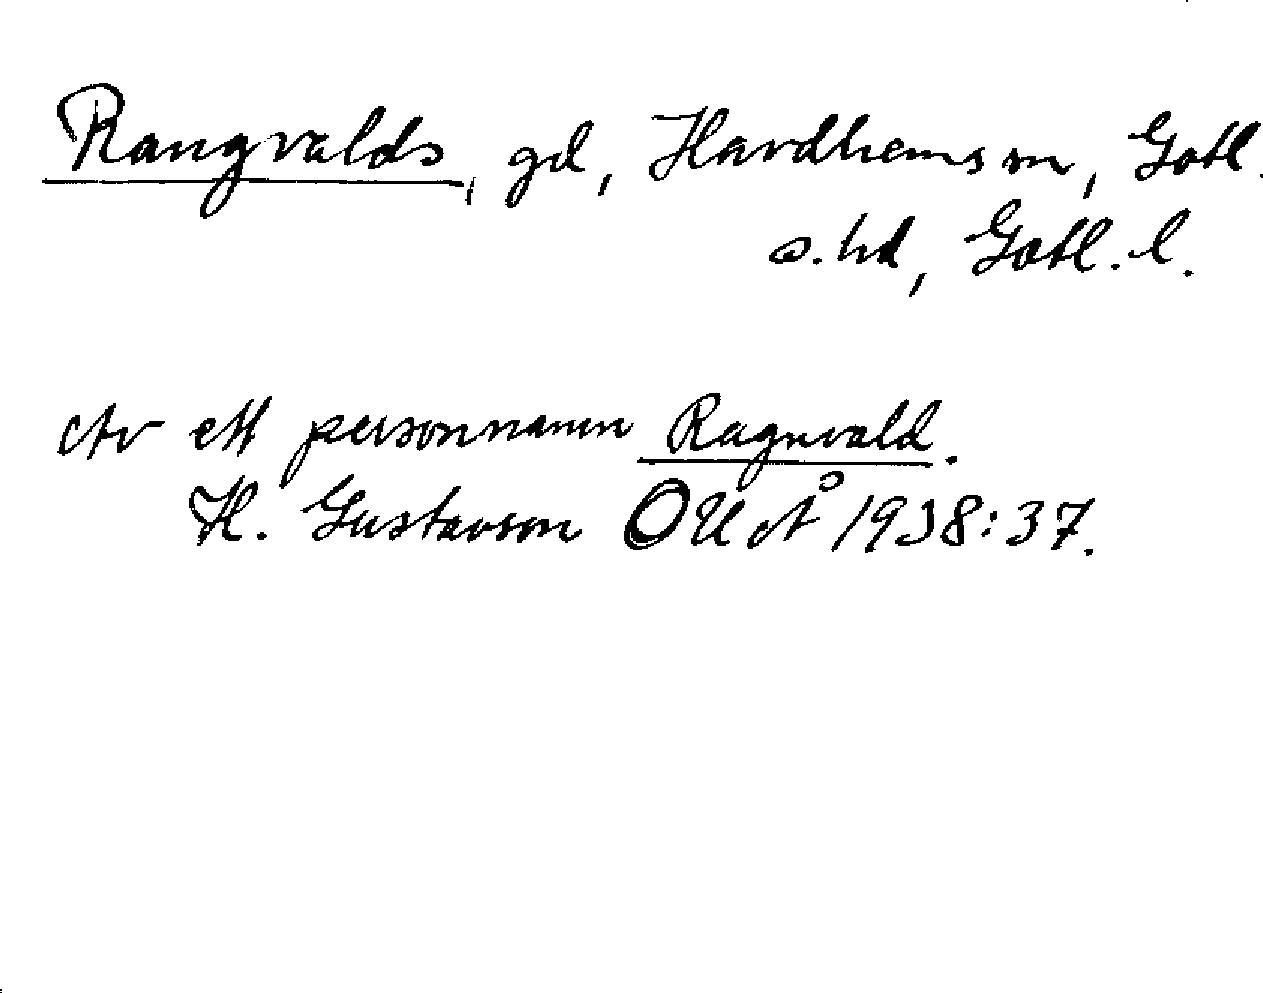 Rangvalds, gd, Havdhems sn, Gotl.
s. hd, Gotl. l.
Av ett personnamn Ragnvald.
H. Gustavson OUÅ 1938:37.